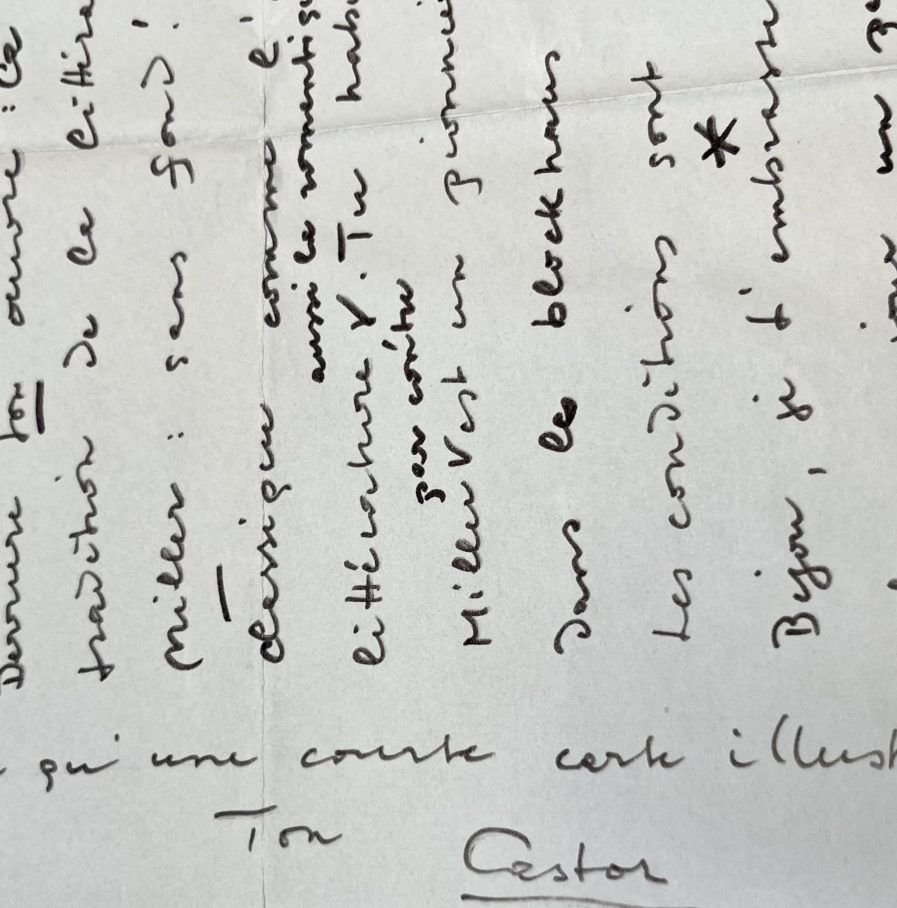 ton œuvre : la
tradition de la littéra
Miller : sans fond !
classique comme l'
aussi le romantis
littérature Y. Tu hab
par contre
Miller V est un pionnie
Dans les blockhaus
Les conditions sont
*
Bijou, je t'embrasse
un
qu'une courte carte illust
Ton
Castor